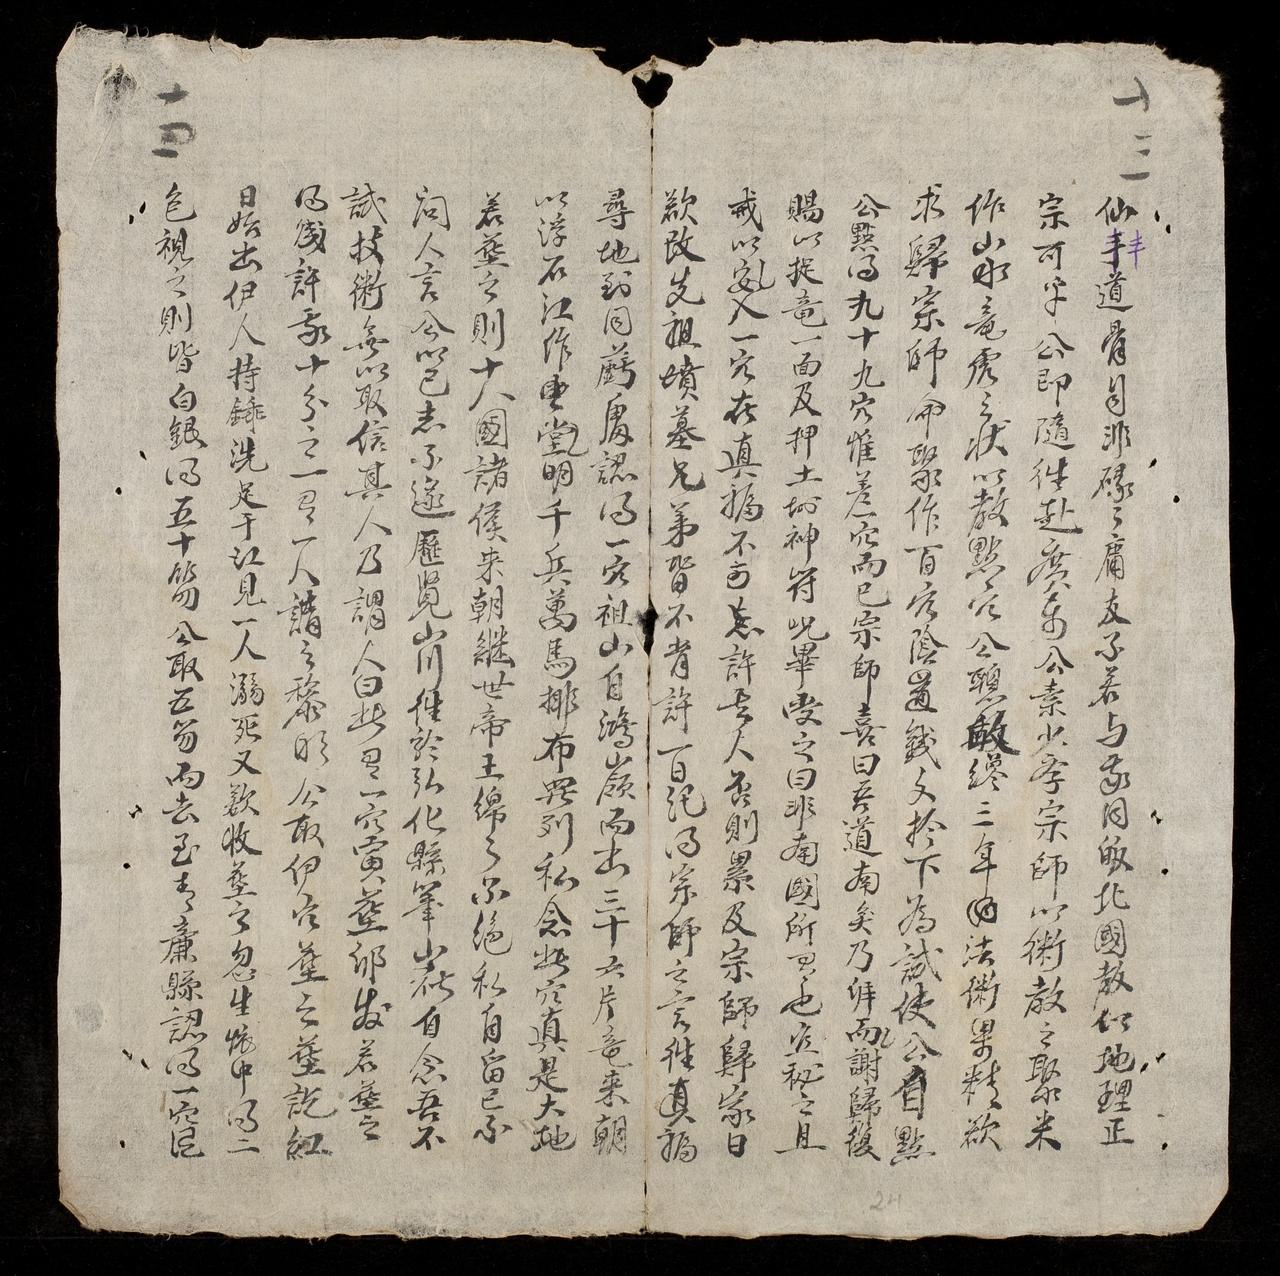 十三
仙丰丰道骨自非碌々庸友不若与我同皈北國教伊地理正
宗可乎公即隨徃赴廣東公素少孝宗師以術教之聚米
作山水竜虎之状以教點穴公聰敏纔三年間法術畢精欲
求歸宗師命聚作百穴陰置錢文扵下為試使公自點
公點得九十九穴惟差一穴而已宗師喜曰吾道南矣乃拜而謝歸復
賜以捉竜一面及押土地神符咒畢受之曰非南國所有也宜秘之且
戒以安入一穴在真福不可忘許吉人否則累及宗師歸家日
欲改先祖墳墓兄弟皆不肯許一日記得宗師之言徃真福
尋地到同薨處認得一穴祖山自鴻嶺而出三十六片竜来朝
以浮石江作興堂明千兵萬馬排布羅列私念此穴真是大地
若葬之則十八國諸侯来朝継世帝王綿々不绝私自留已不
问人言公以已志不遂歷覽山川徃於弘化縣筆山嶽自念吾不
試技術無以取信其人乃謂人曰此有一穴寅葬卯发若葬之
得錢許我十分之一有一人請之黎明公取伊穴葬之葬訖紅
日始出伊人持鋤洗足于江見一人溺死又欲收葬之忽生怀中得二
包視之則皆白銀得五十笏公取五笏而去至青廉縣認得一穴艮
十四
24